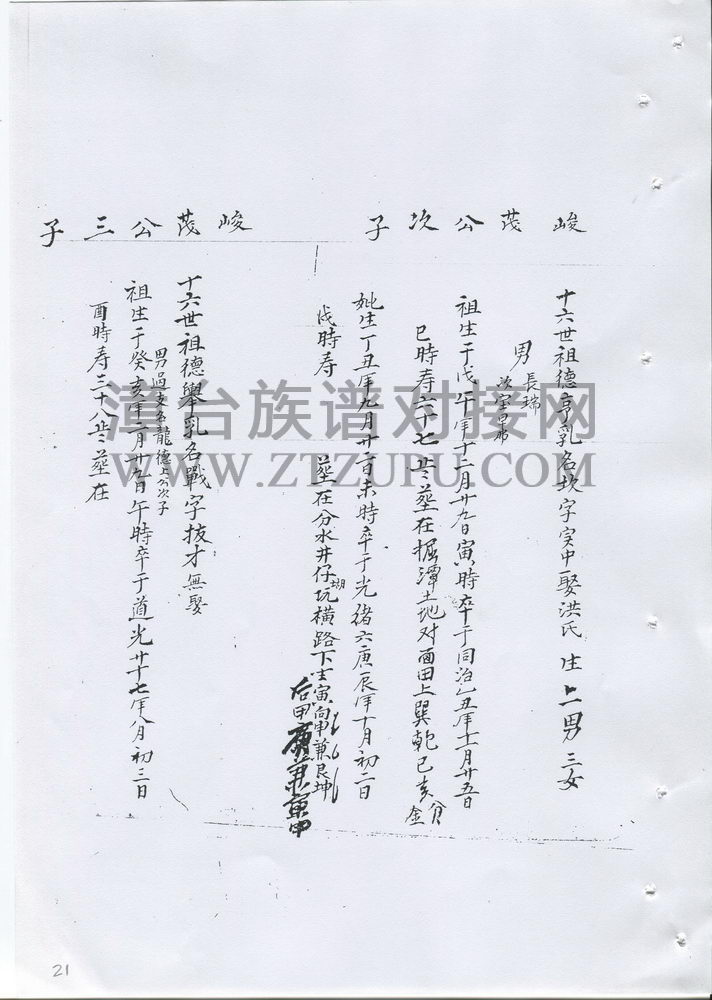 峻茂公次子
十六世祖德亨乳名坎字实中娶洪氏 生二男三女
男長瑞
祖生于戊午年十二月廿九日寅時卒于同治乙丑年十一月廿五日
巳時寿六十七 葬在掘潭土地对面田上巽乾巳亥分金
妣生丁丑年九月廿二日未時卒于光绪六庚辰年十月初二日
戌時寿 葬在分水井仔坑横路下 寅向申兼艮坤
峻茂公三子
十六世祖德舉乳名戰字拔才無娶
男過支名龍德上公次子
祖生于癸亥年二月廿九日午時卒于道光廿十七年八月初三日
酉時寿三十八 葬在
漳台族谱对接网
WWW.ZTZUPU.COM
21